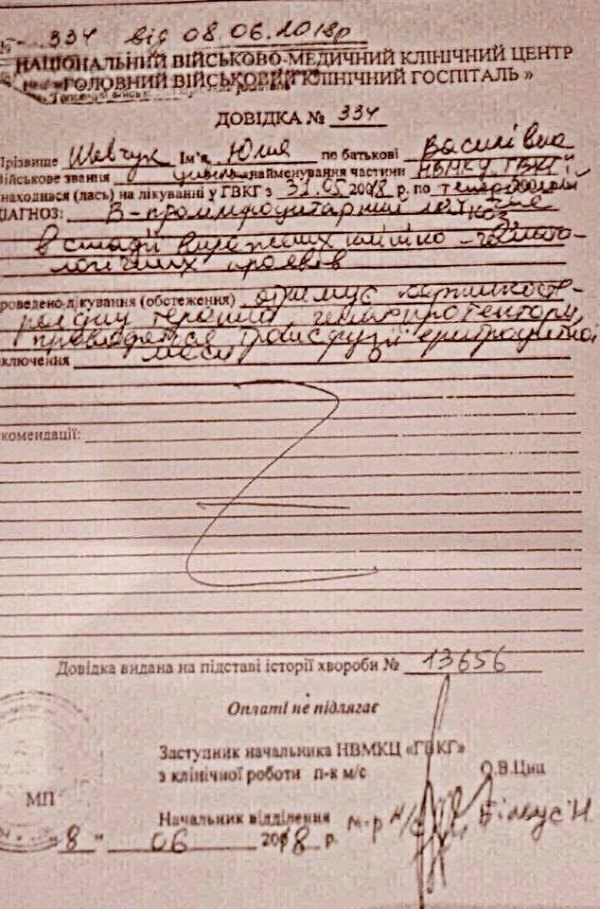 № 334 від 08.06.2018р
НАЦІОНАЛЬНИЙ ВІЙСЬКОВО-МЕДИЧНИЙ КЛІНІЧНИЙ ЦЕНТР
«ГОЛОВНИЙ ВІЙСЬКОВИЙ КЛІНІЧНИЙ ГОСПІТАЛЬ»
ДОВІДКА № 334
Прізвище Шевчук Ім'я Юлія по батькові Василівна
Військове звання найменування частини НВМКЦ ГВКГ
знаходився (лась) на лікуванні у ГВКГ з 31.05 2018 р. по
ДІАГНОЗ: В-пролімфоцитарний лейкоз
в стадії виражених клініко-гемато-
логічних проявів
проведено лікування (обстеження) отримує
терапію, гепатопротектори,
проводяться трансфузії еритроцитної
включення маси
комендації:
Довідка видана на підставі історії хвороби № 13656
Оплаті не підлягає
Заступник начальника НВМКЦ «ГВКГ»
з клінічної роботи п-к м/с О.В.
МП
Начальник відділення м-р м/с
8 " 06 2018 р.